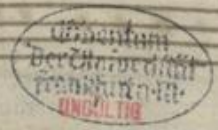 Eigentum
Der Universität
Frankfurt a. M.
UNGÜLTIG